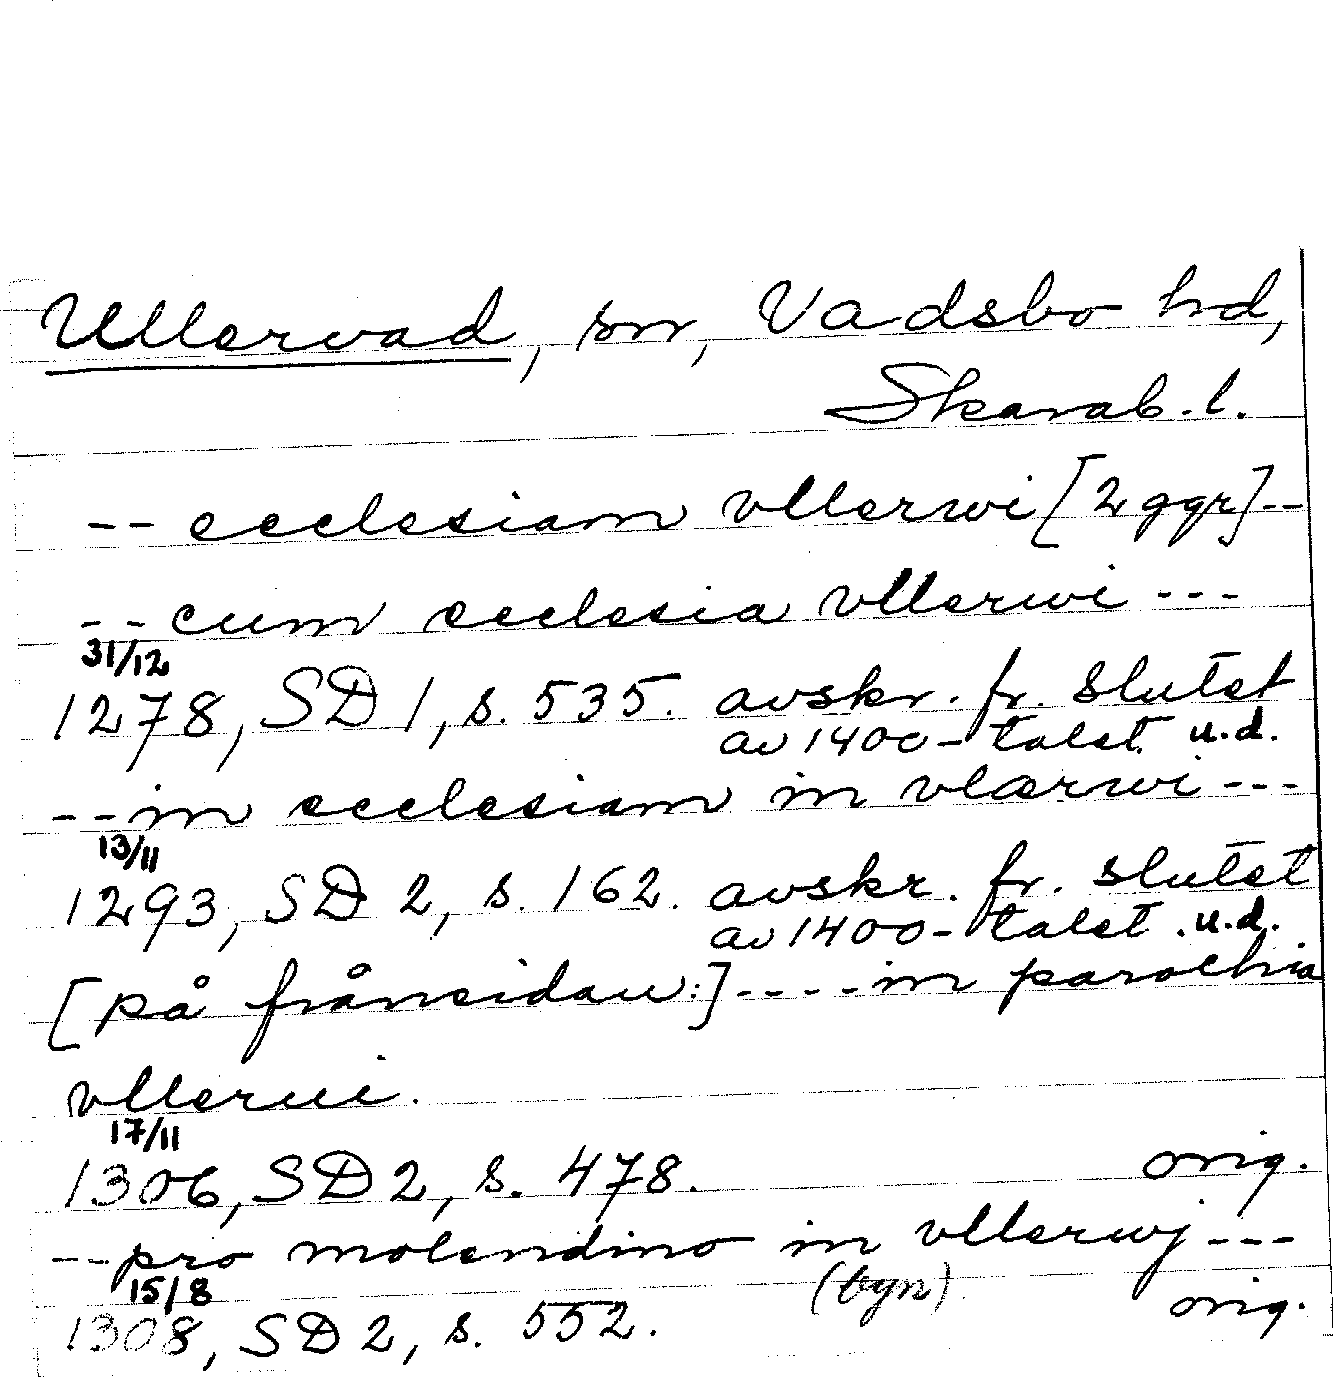 Ullervad, sn, Vadsbo hd,
Skarab. l.
-- ecclesiam vllerwi [2 ggr]--
-- cum ecclesia vllerwi ---
31/12
1278, SD 1, s. 535. avskr. fr. slutet
av 1400-talet u.d.
-- in ecclesiam in vlærwi ---
13/11
1293, SD 2, s. 162. avskr. fr. slutet
av 1400-talet. u.d.
[på frånsidan:] ---- in parochia
vllerui.
17/11
1306, SD 2, s. 478. orig.
-- pro molendino in vllerwj ---
15/8 (byn)
1308, SD 2, s. 552. orig.